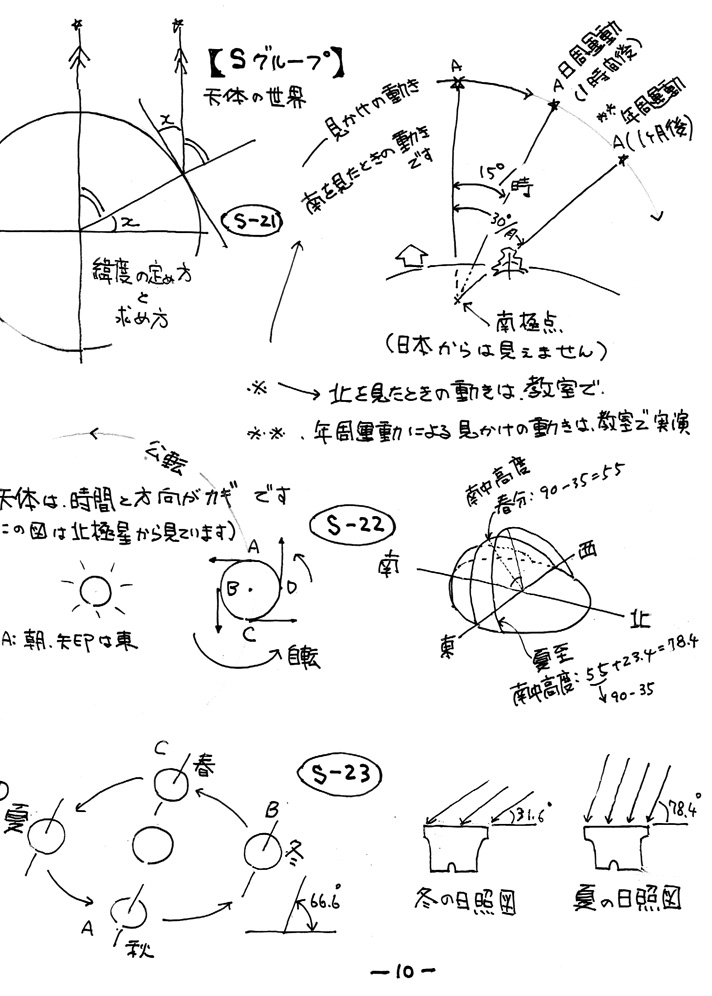 【Sグループ】
天体の世界
x
x
S-21
緯度の定め方
と
求め方
見かけの動き
南を見たときの動き
です
A
A 日周運動
(1時間後)
※※ 年周運動
A(1ヶ月後)
15°
時
30°/月
南極点
(日本からは見えません)
※ → 北を見たときの動きは、教室で.
※※. 年周運動による見かけの動きは、教室で実演
公転
天体は、時間と方向がカギです
この図は北極星から見ています)
S-22
A
B
C
D
A: 朝、矢印は東
自転
南中高度
春分: 90-35=55
南
西
東
北
夏至
南中高度: 55+23.4=78.4
90-35
S-23
C
春
夏
B
冬
A
秋
66.6°
31.6°
78.4°
冬の日照図
夏の日照図
-10-